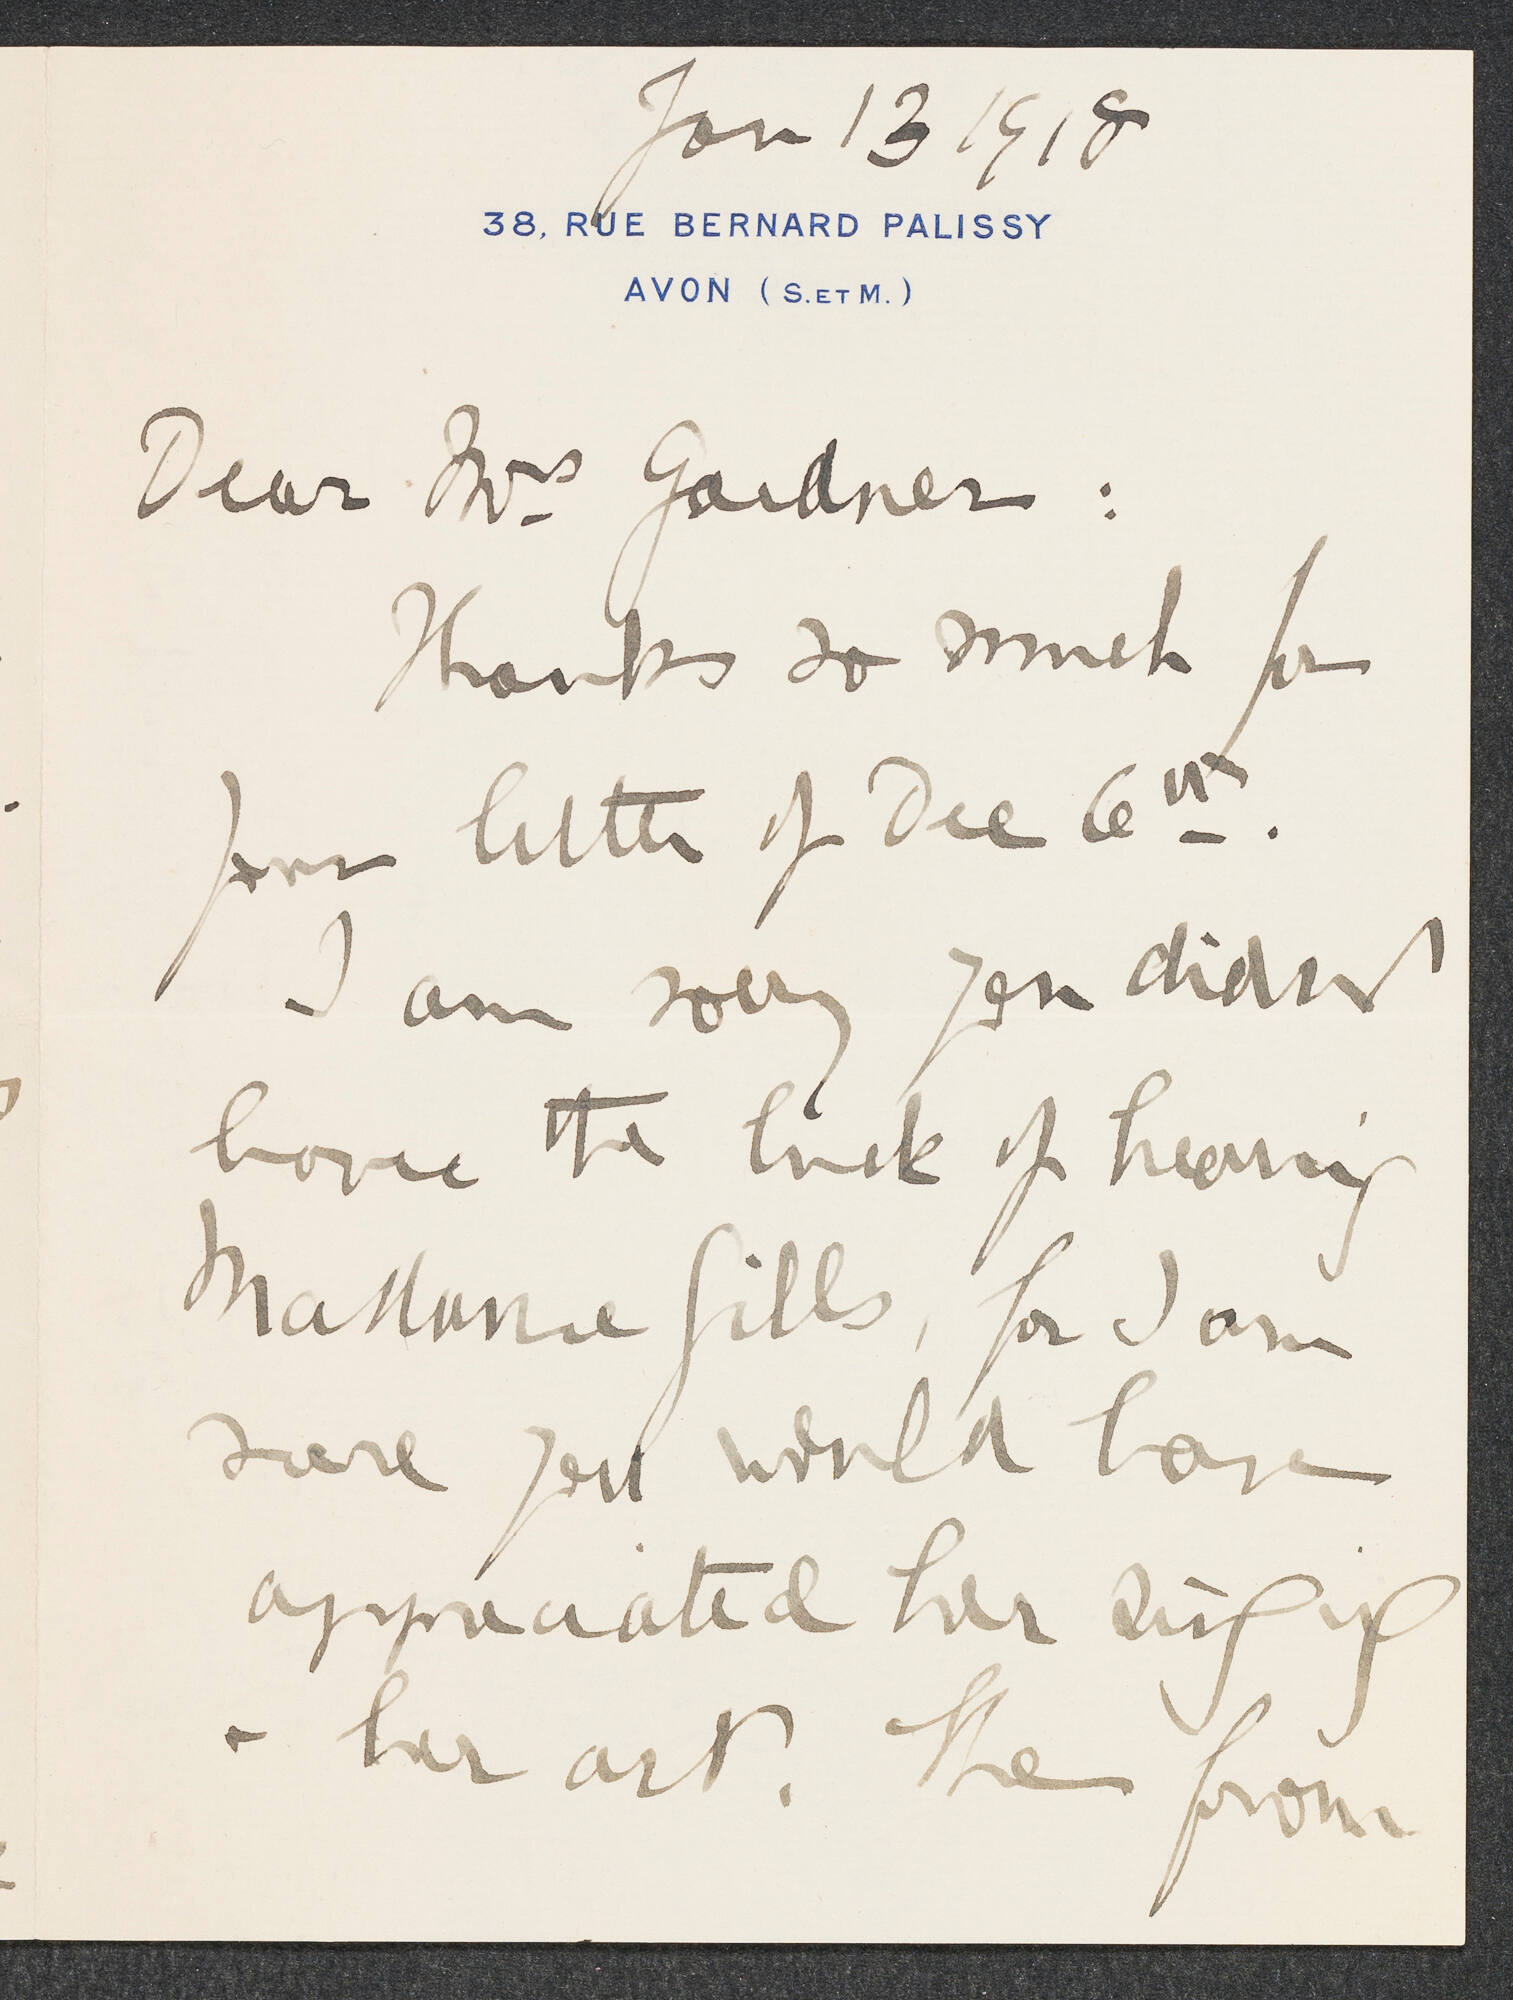 Jan 13 1918
38, RUE BERNARD PALISSY
AVON (S. ET M.)
Dear Mrs Gardner :
Thanks so much for
your letter of Dec 6th.
I am sorry you didn't
have the luck of hearing
Madame Gills, for I am
sure you would have
appreciated her singing
+ her art. The from